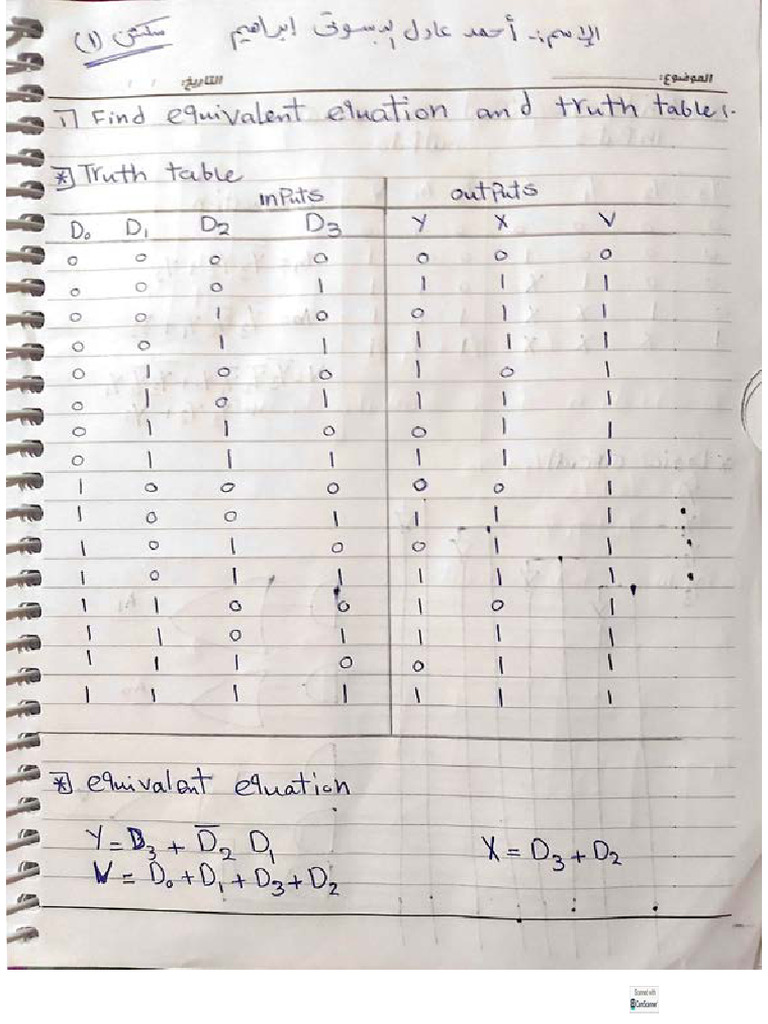 الإسم:- أحمد عادل الدسوقى ابراهيم سكشن (١)
الموضوع: التاريخ: / /
1) Find equivalent equation and truth table:-
* Truth table
inputs outputs
D₀ D₁ D₂ D₃ Y X V
0 0 0 0 0 0 0
0 0 0 1 1 1 1
0 0 1 0 0 1 1
0 0 1 1 1 1 1
0 1 0 0 1 0 1
0 1 0 1 1 1 1
0 1 1 0 0 1 1
0 1 1 1 1 1 1
1 0 0 0 0 0 1
1 0 0 1 1 1 1
1 0 1 0 0 1 1
1 0 1 1 1 1 1
1 1 0 0 1 0 1
1 1 0 1 1 1 1
1 1 1 0 0 1 1
1 1 1 1 1 1 1
* equivalent equation
Y = D₃ + D̅₂ D₁ X = D₃ + D₂
V = D₀ + D₁ + D₃ + D₂
Scanned with
CamScanner